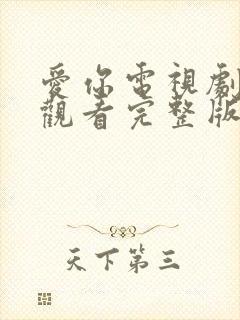 愛你電視劇
觀看完整版
天下第三